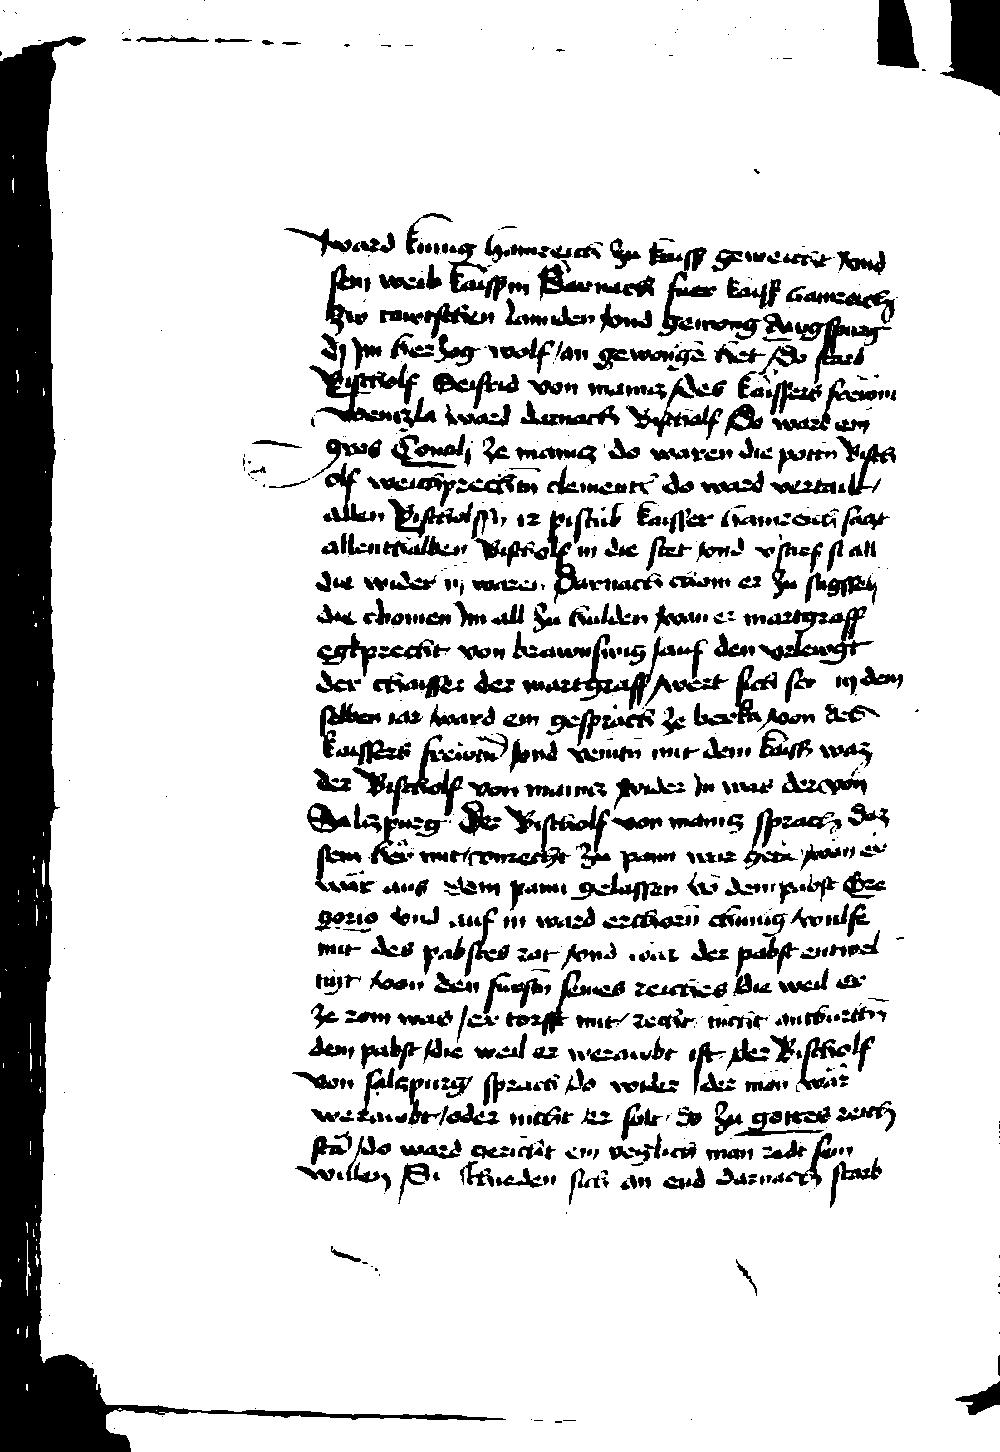 ward kunig hainreich zu kaiss geweicht vnd
sein weib kaissrin Darnach fuer kaiss hainreich
zw tawtschen lannden vnd gewong Augspurg
dy im herzog wolf an gewongen het Do starb
Bischolf Seifrid von maincz des kaissers frewnt
wenczla ward darnach Bischolf Do ward ein
gros Concilj ze maincz do waren die pottn Bisch
olf weichprechtn clementz do ward vertailt
allen Bischolffn ir pistub kaisser hainreich saczt
allenthalben Bischolf in die stet vnd v͛stief si all
die wider in waren Darnach chom er zu sagssen
die chomen im all zu hulden wan er martgraff
egkprecht von brawnswig auf den vrlewgt
der chaisser der martgraff wert sich ser in dem
selben iar ward ein gesprach ze berka von des
kaissers frewntn vnd veintn mit dem kaiss waz
der Bischolf von maincz wider in was der von
Salczpurg Der Bischolf von maincz sprach daz
sein her mit vnrecht zu pann wär getan wan er
wär aus dem pann gelassen von dem pabst Gre
gorio vnd auf in ward erchorn chunig
mit des pabstes rat vnd war der pabst entwel
tigt von den furstn seines reiches die weil er
ze rom was er torfft mit recht nicht antburttn
dem pabst die weil er weraubt ist der Bischolf
von salczpurg sprach do wider der man wär
weraubt oder nicht er solt do zu gottes reich
stan do ward gericht ein yeglich man redt sein
willen Si schieden sich an end darnach starb